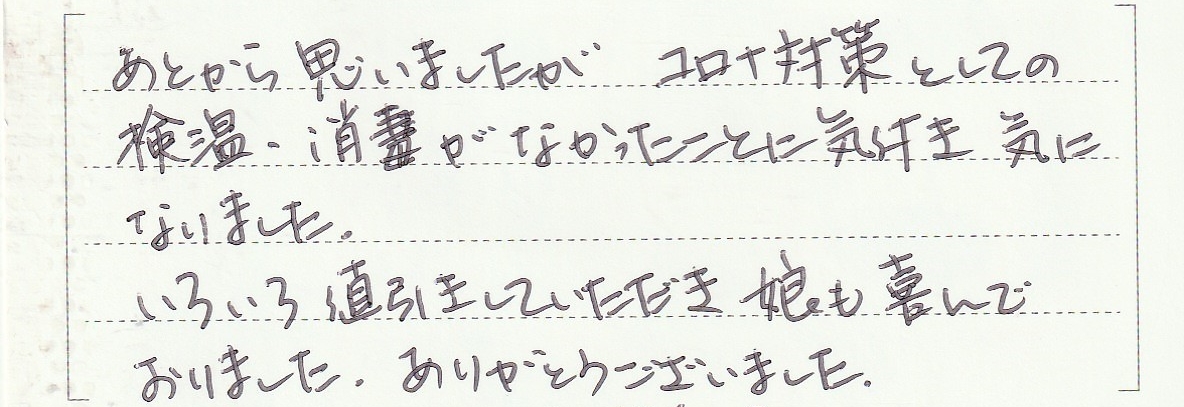 あとから思いましたが コロナ対策としての
検温・消毒がなかったことに気付き 気に
なりました.
いろいろ値引きしていただき 娘も喜んで
おりました. ありがとうございました.